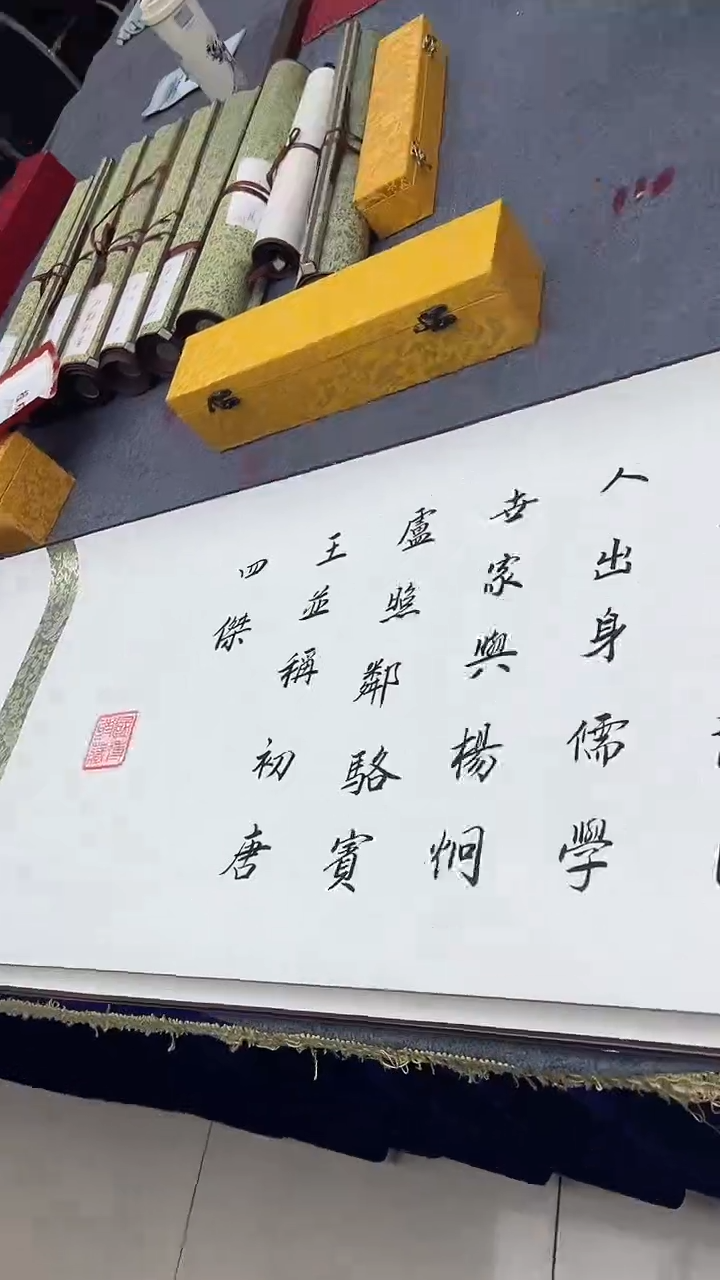 人出身儒學
世家與楊炯
盧照鄰駱賓
王並稱初唐
四傑